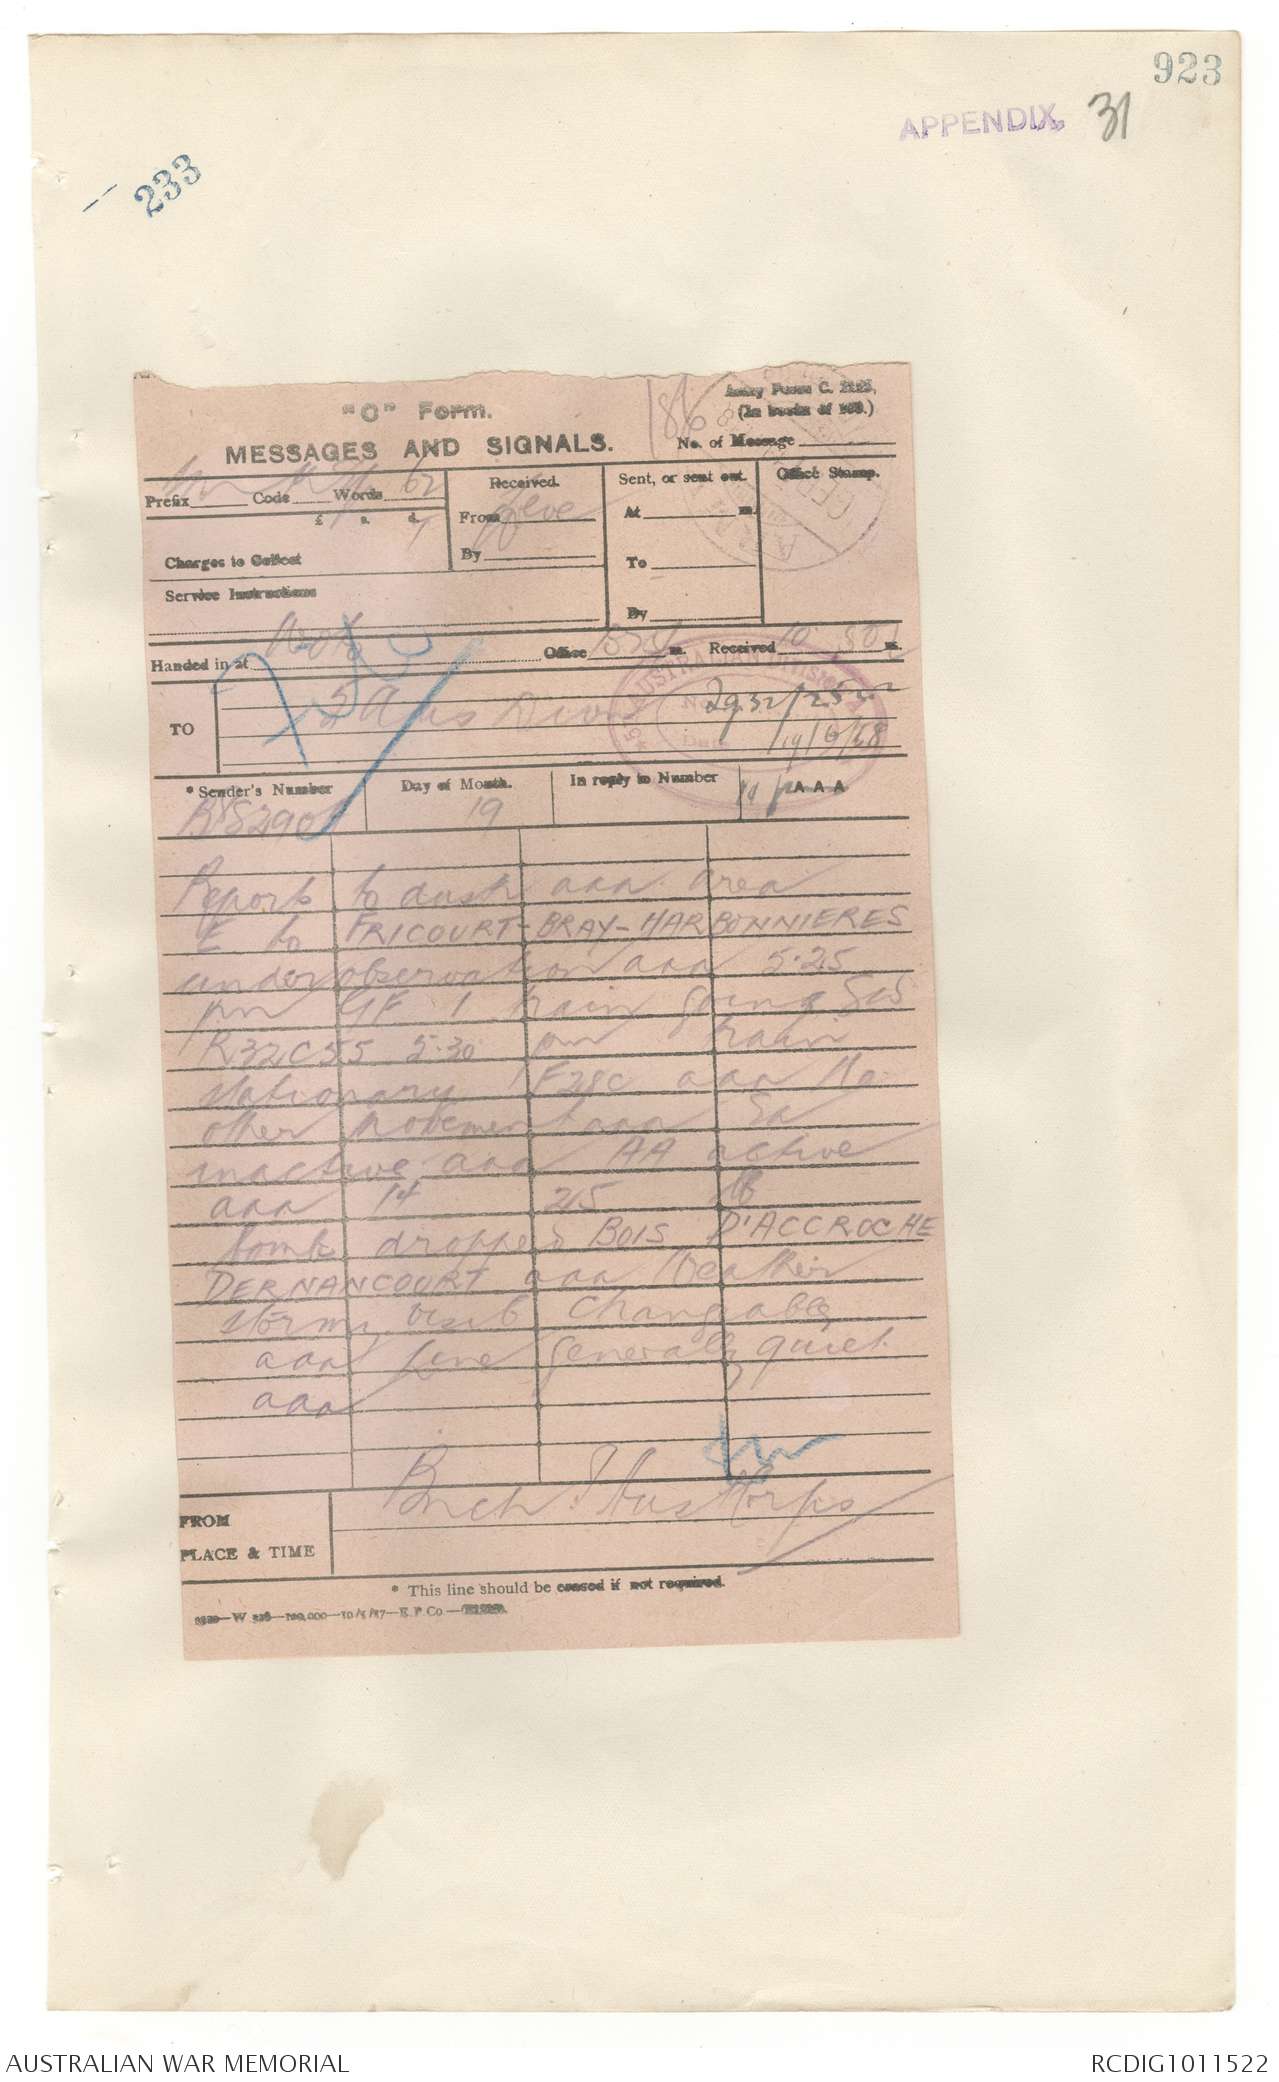 923
APPENDIX. 31
233
"C" Form.
Army Form C. 2123.
(In books of 100.)
MESSAGES AND SIGNALS.
No. of Message
186
Prefix Code Words 62
Received.
From
By
Sent, or sent out.
At m.
To
By
Office Stamp.
£ s. d.
Charges to Collect
Service Instructions
Handed in at Office m. Received 10 m.
TO
5 Aus Divn
AUSTRALIAN DIVISION
19/6/18
* Sender's Number
Day of Month.
In reply to Number
AAA
19
Report to dusk aaa area
E to FRICOURT-BRAY-HARBONNIERES
under observation aaa 5.25
pm 1 train going
R32C55 5.30 pm train
stationary F28C aaa No
other movement aaa EA
inactive aaa AA active
aaa 14 25 lb
bombs dropped BOIS D'ACCROCHE
DERNANCOURT aaa Weather
stormy visib changeable
aaa Line generally quiet
aaa
FROM
PLACE & TIME
Aus Corps
* This line should be erased if not required.
AUSTRALIAN WAR MEMORIAL
RCDIG1011522